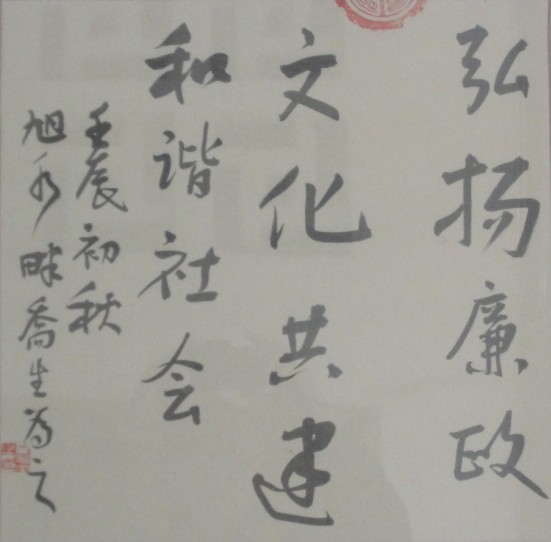 弘扬廉政
文化共建
和谐社会
壬辰初秋
旭水畔喬生为之